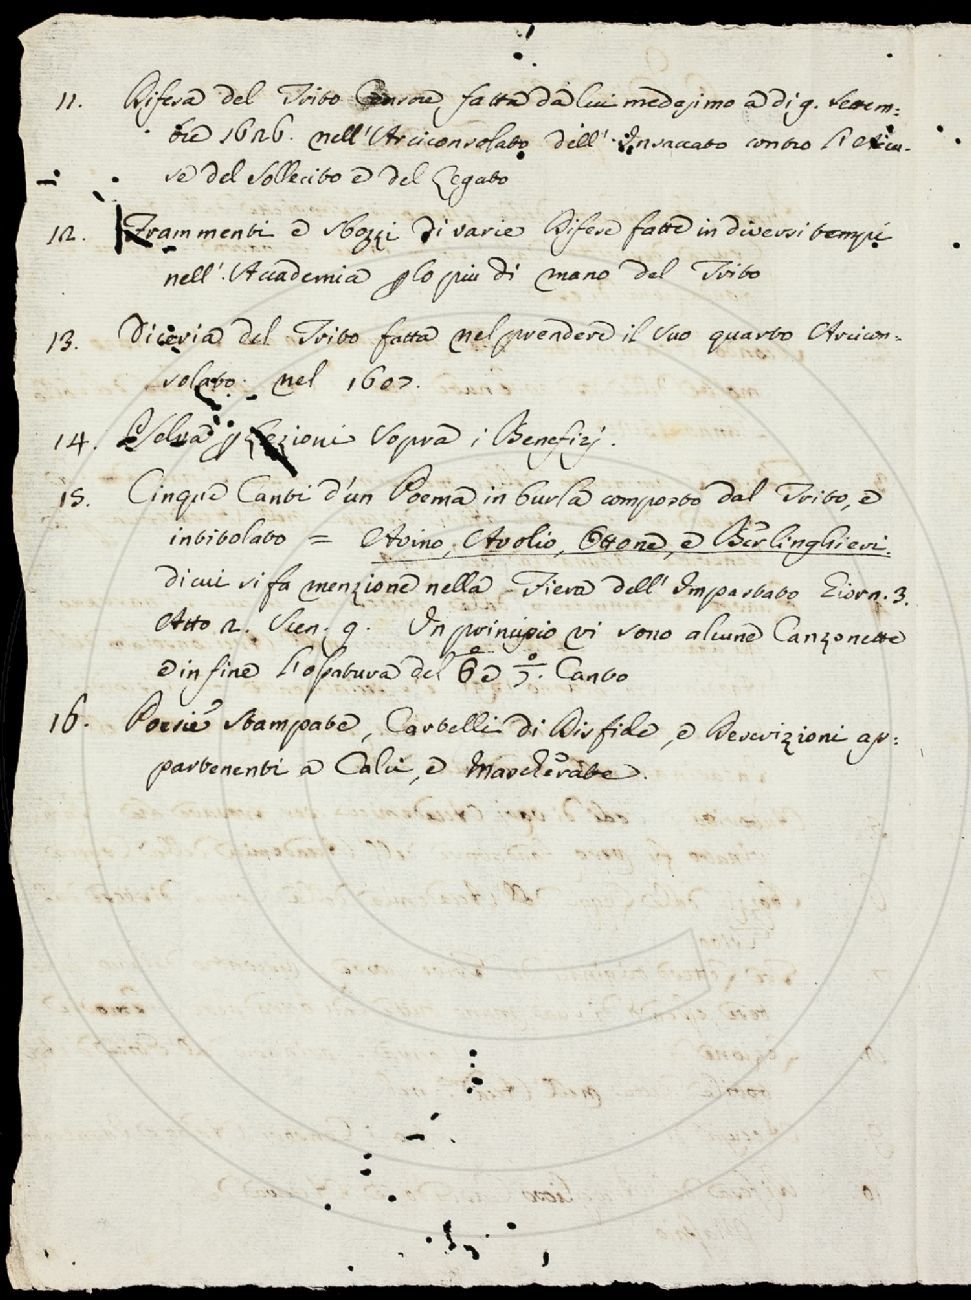 11. Difesa del Trito Censore, fatta da lui medesimo a di 9. Settem=
bre 1626. nell'Arciconsolato dell'Insaccato contro l'Accu-
se del Sollecito e del Legato
12. Frammenti e sbozzi di varie Difese fatte in diversi tempi
nell'Accademia p lo piu di mano del Trito
13. Diceria del Trito fatta nel prendere il suo quarto Arcicon=
solato nel 1607.
14. Selva p Lezioni sopra i Benefizj.
15. Cinque Canti d'un Poema in burla composto dal Trito, e
intitolato = Avino, Avolio, Ottone, e Berlinghieri.
di cui si fa menzione nella Fiera dell'Impastato Giorn. 3.
Atto 2. Scen. 9. In principio vi sono alcune Canzonette
e in fine l'ossatura del 6° e 7°. Canto
16. Poesie stampate, Cartelli di Disfide, e Descrizioni ap=
partenenti a Calci, e Mascherate.